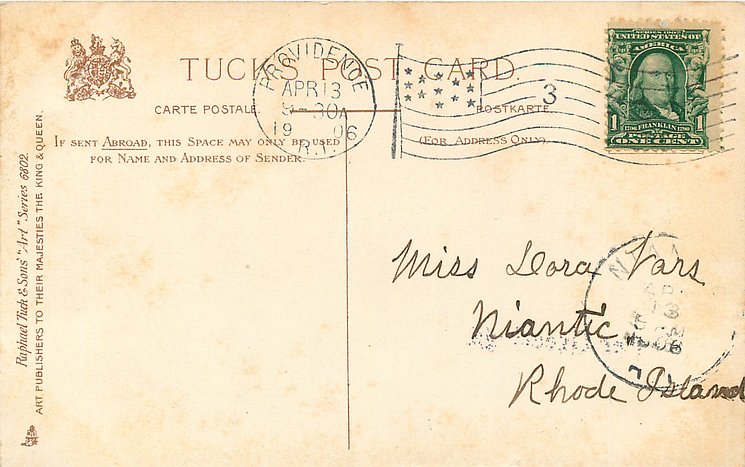 TUCK'S POST CARD
CARTE POSTALE
POSTKARTE
IF SENT ABROAD, THIS SPACE MAY ONLY BE USED
FOR NAME AND ADDRESS OF SENDER.
(FOR ADDRESS ONLY)
PROVIDENCE
APR 13
9-30A
19 06
R.I.
3
SERIES 1902
UNITED STATES OF
AMERICA
1 FRANKLIN 1
POSTAGE
ONE CENT
Raphael Tuck & Sons' "Art" Series 6802.
ART PUBLISHERS TO THEIR MAJESTIES THE KING & QUEEN.
Miss Dora Vars
Niantic
Rhode Island
13
1906